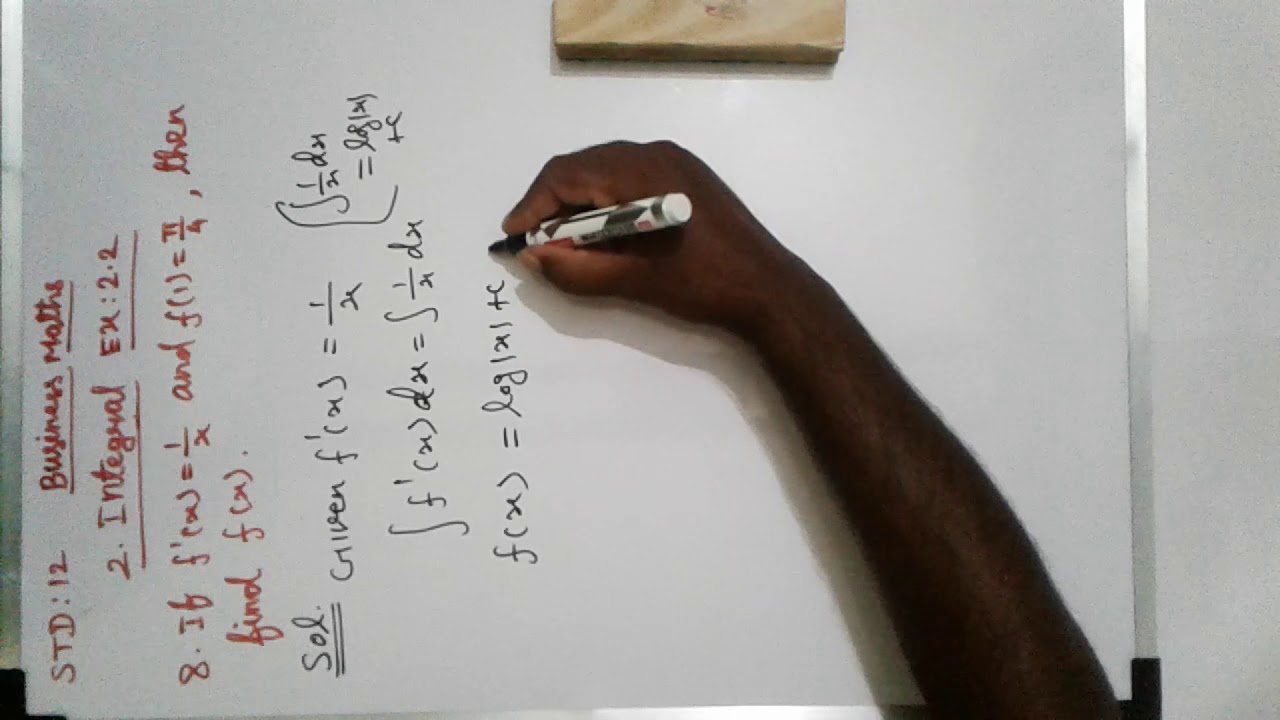 STD: 12 Business Maths
2. Integral Ex: 2.2
8. If f'(x) = 1/x and f(1) = π/4, then
find f(x).
Sol. Given f'(x) = 1/x
∫ f'(x) dx = ∫ 1/x dx
∫ 1/x dx
= log|x|
+c
f(x) = log|x| + c